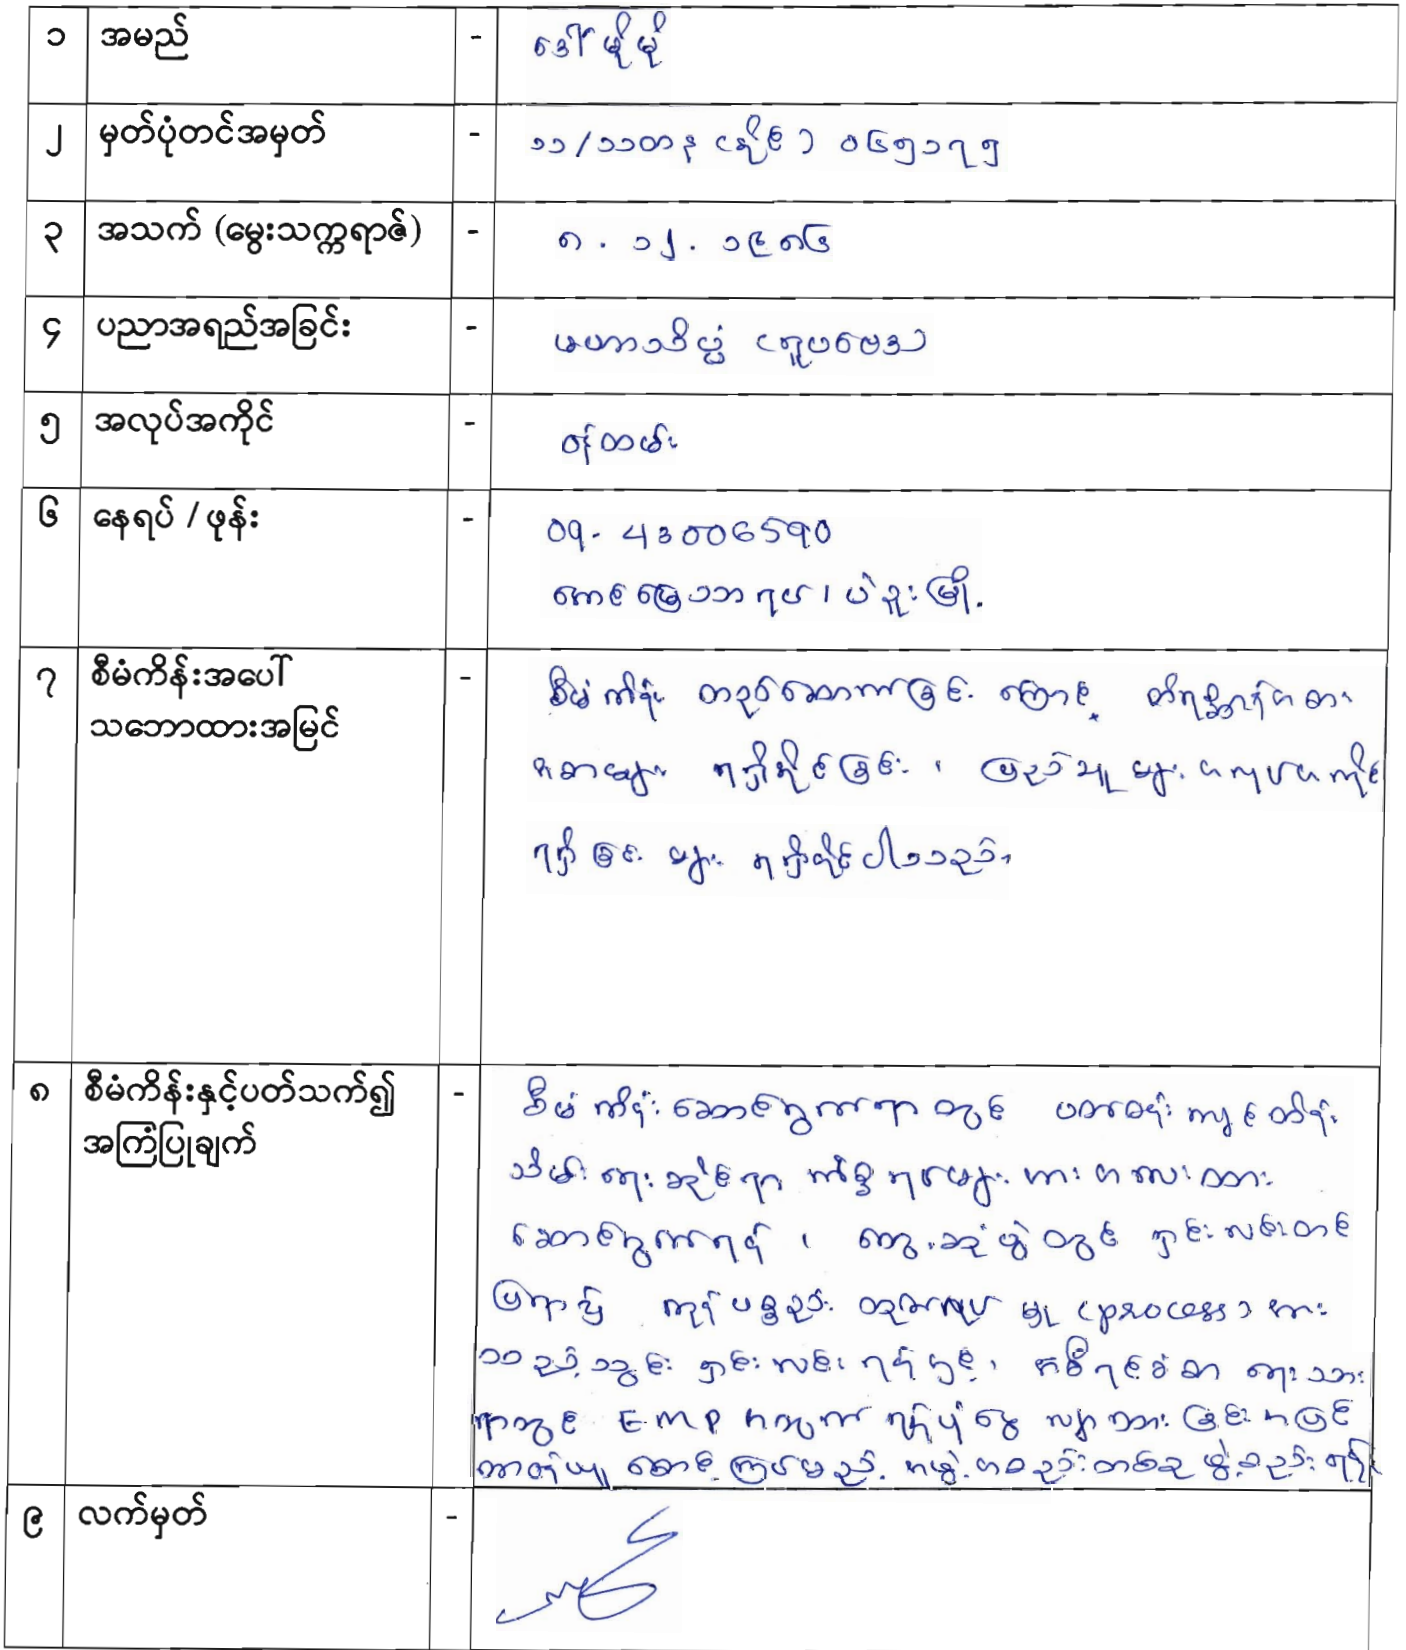 ၁ အမည် - ဒေါ်မိုမို
၂ မှတ်ပုံတင်အမှတ် - ၁၁/၁၁တန (နိုင်) ၀၆၅၁၇၅
၃ အသက် (မွေးသက္ကရာဇ်) - ၈.၁၂.၁၉၈၆
၄ ပညာအရည်အခြင်း - မဟာသိပ္ပံ (ရူပဗေဒ)
၅ အလုပ်အကိုင် - ဝန်ထမ်း
၆ နေရပ် / ဖုန်း - 09-43006590
အောင်မြေသာရပ်၊ ပဲခူးမြို့
၇ စီမံကိန်းအပေါ် - စီမံကိန်း တည်ဆောက်ခြင်းကြောင့် တိရစ္ဆာန်အစား
သဘောထားအမြင် အစာများ ရရှိနိုင်ခြင်း၊ ပြည်သူများ အလုပ်အကိုင်
ရရှိခြင်းများ ရရှိနိုင်ပါသည်။
၈ စီမံကိန်းနှင့်ပတ်သက်၍ - စီမံကိန်းဆောင်ရွက်ရာတွင် ပတ်ဝန်းကျင်ထိန်း
အကြံပြုချက် သိမ်းရေးဆိုင်ရာ ကိစ္စရပ်များအား အလေးထား
ဆောင်ရွက်ရန်၊ တွေ့ဆုံပွဲတွင် ရှင်းလင်းတင်
ပြရာ၌ ကုန်ပစ္စည်း ထုတ်လုပ်မှု (process) အား
သည့်သွင်း ရှင်းလင်းရန်နှင့်၊ အစီရင်ခံစာ ရေးသား
ရာတွင် EMP အတွက် ရန်ပုံငွေ လျာထားခြင်းအပြင်
တာဝန်ယူ စောင့်ကြပ်မည့် အဖွဲ့အစည်းတစ်ခု ဖွဲ့စည်းရန်
၉ လက်မှတ် -